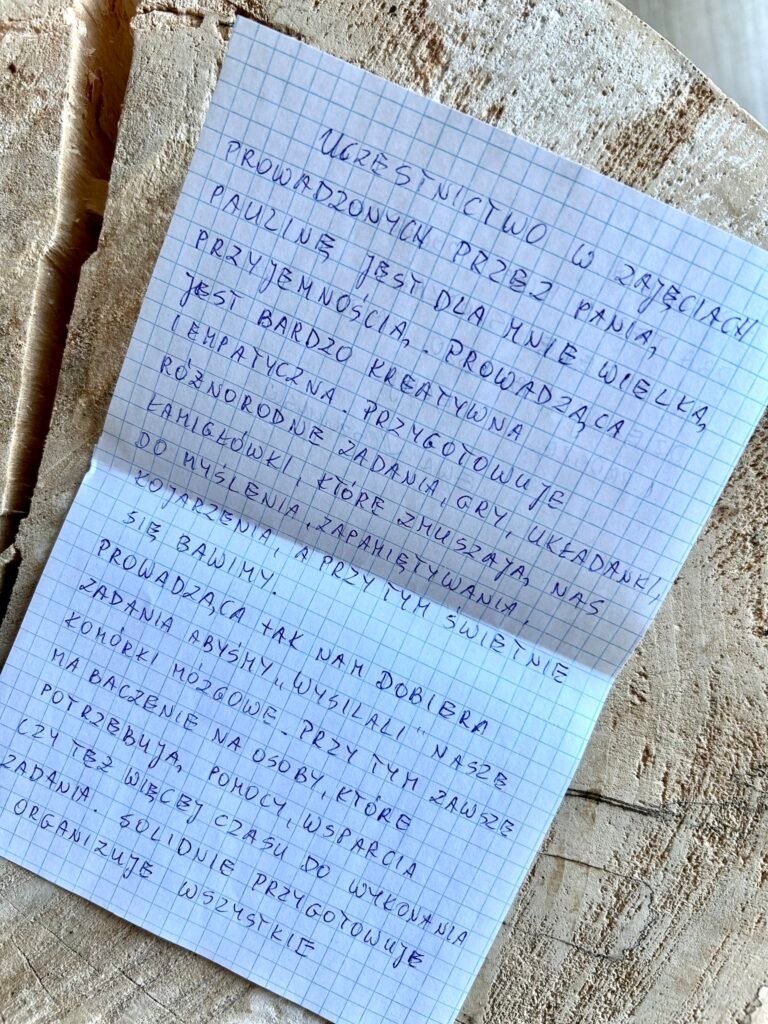 UCZESTNICTWO W ZAJĘCIACH
PROWADZONYCH PRZEZ PANIĄ
PAULINĘ JEST DLA MNIE WIELKĄ
PRZYJEMNOŚCIĄ. PROWADZĄCA
JEST BARDZO KREATYWNA
I EMPATYCZNA. PRZYGOTOWUJE
RÓŻNORODNE ZADANIA, GRY, UKŁADANKI,
ŁAMIGŁÓWKI, KTÓRE ZMUSZAJĄ NAS
DO MYŚLENIA, ZAPAMIĘTYWANIA,
KOJARZENIA, A PRZY TYM ŚWIETNIE
SIĘ BAWIMY.
PROWADZĄCA TAK NAM DOBIERA
ZADANIA ABYŚMY „WYSILALI" NASZE
KOMÓRKI MÓZGOWE. PRZY TYM ZAWSZE
MA BACZENIE NA OSOBY, KTÓRE
POTRZEBUJĄ POMOCY, WSPARCIA
CZY TEŻ WIĘCEJ CZASU DO WYKONANIA
ZADANIA. SOLIDNIE PRZYGOTOWUJE
ORGANIZUJE WSZYSTKIE